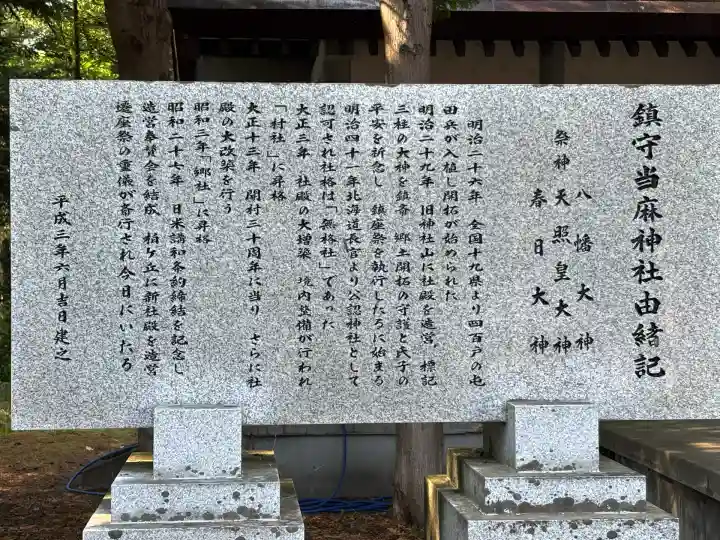 鎮守当麻神社由緒記
八幡大神
祭神天照皇大神
春日大神
明治二十六年 全国十九県より四百戸の屯
田兵が入植し開拓が始められた
明治二十九年 旧神社山に社殿を造営、標記
三柱の大神を鎮斎 郷土開拓の守護と氏子の
平安を祈念し 鎮座祭を執行したるに始まる
明治四十一年北海道長官より公認神社として
認可され社格は「無格社」であった
大正三年 社殿の大増築 境内整備が行われ
「村社」に昇格
大正十三年 開村三十周年に当り さらに社
殿の大改築を行う
昭和三年「郷社」に昇格
昭和二十七年 日米講和条約締結を記念し
造営奉賛会を結成 柏ヶ丘に新社殿を造営
遷座祭の重儀が斎行され今日にいたる
平成三年六月吉日建之